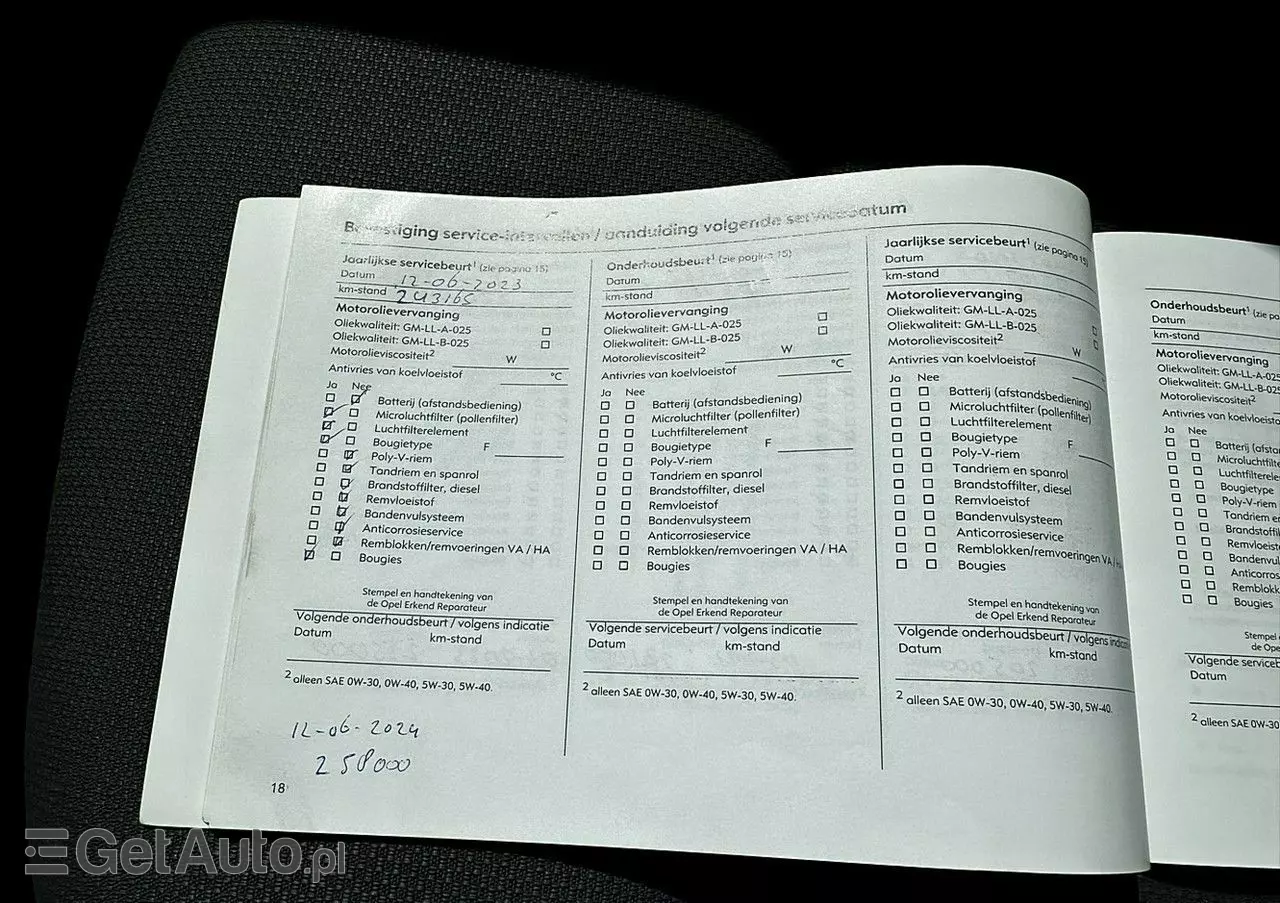 Bevestiging service-intervallen / aanduiding volgende servicedatum
Jaarlijkse servicebeurt¹ (zie pagina 15)
Datum 12-06-2023
km-stand 243165
Motorolievervanging
Oliekwaliteit: GM-LL-A-025
Oliekwaliteit: GM-LL-B-025
Motorolieviscositeit² W
Antivries van koelvloeistof °C
Ja Nee
Batterij (afstandsbediening)
Microluchtfilter (pollenfilter)
Luchtfilterelement
Bougietype F
Poly-V-riem
Tandriem en spanrol
Brandstoffilter, diesel
Remvloeistof
Bandenvulsysteem
Anticorrosieservice
Remblokken/remvoeringen VA / HA
Bougies
Stempel en handtekening van
de Opel Erkend Reparateur
Volgende onderhoudsbeurt / volgens indicatie
Datum km-stand
² alleen SAE 0W-30, 0W-40, 5W-30, 5W-40.
12-06-2024
258000
18
Onderhoudsbeurt¹ (zie pagina 15)
Datum
km-stand
Motorolievervanging
Oliekwaliteit: GM-LL-A-025
Oliekwaliteit: GM-LL-B-025
Motorolieviscositeit² W
Antivries van koelvloeistof °C
Ja Nee
Batterij (afstandsbediening)
Microluchtfilter (pollenfilter)
Luchtfilterelement
Bougietype F
Poly-V-riem
Tandriem en spanrol
Brandstoffilter, diesel
Remvloeistof
Bandenvulsysteem
Anticorrosieservice
Remblokken/remvoeringen VA / HA
Bougies
Stempel en handtekening van
de Opel Erkend Reparateur
Volgende servicebeurt / volgens indicatie
Datum km-stand
² alleen SAE 0W-30, 0W-40, 5W-30, 5W-40.
Jaarlijkse servicebeurt¹ (zie pagina 15)
Datum
km-stand
Motorolievervanging
Oliekwaliteit: GM-LL-A-025
Oliekwaliteit: GM-LL-B-025
Motorolieviscositeit² W
Antivries van koelvloeistof
Ja Nee
Batterij (afstandsbediening)
Microluchtfilter (pollenfilter)
Luchtfilterelement
Bougietype F
Poly-V-riem
Tandriem en spanrol
Brandstoffilter, diesel
Remvloeistof
Bandenvulsysteem
Anticorrosieservice
Remblokken/remvoeringen VA / HA
Bougies
Stempel en handtekening van
de Opel Erkend Reparateur
Volgende onderhoudsbeurt / volgens
Datum km-stand
² alleen SAE 0W-30, 0W-40, 5W-30, 5W-40.
Onderhoudsbeurt¹ (zie
Datum
km-stand
Motorolievervanging
Oliekwaliteit: GM-LL-A-025
Oliekwaliteit: GM-LL-B-025
Motorolieviscositeit²
Antivries van koelvloeistof
Ja Nee
Batterij
Bougietype
Poly-V-riem
Tandriem en
Bougies
de
Volgende
Datum
² alleen SAE 0W-30
GetAuto.pl